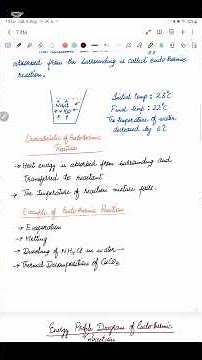 absorbed from the surrounding is called endothermic
reaction.
Initial temp : 28°C
Final temp : 22°C
The temperature of water
decreased by 6°C
Characteristic of Endothermic
Reaction
→ Heat energy is absorbed from surrounding and
transferred to reactant
→ The temperature of reaction mixture falls.
Example of Endothermic Reaction
→ Evaporation
→ Melting
→ Dissolving of NH4Cl in water
→ Thermal Decomposition of CaCO3
Energy Profile Diagram of Endothermic
Reaction